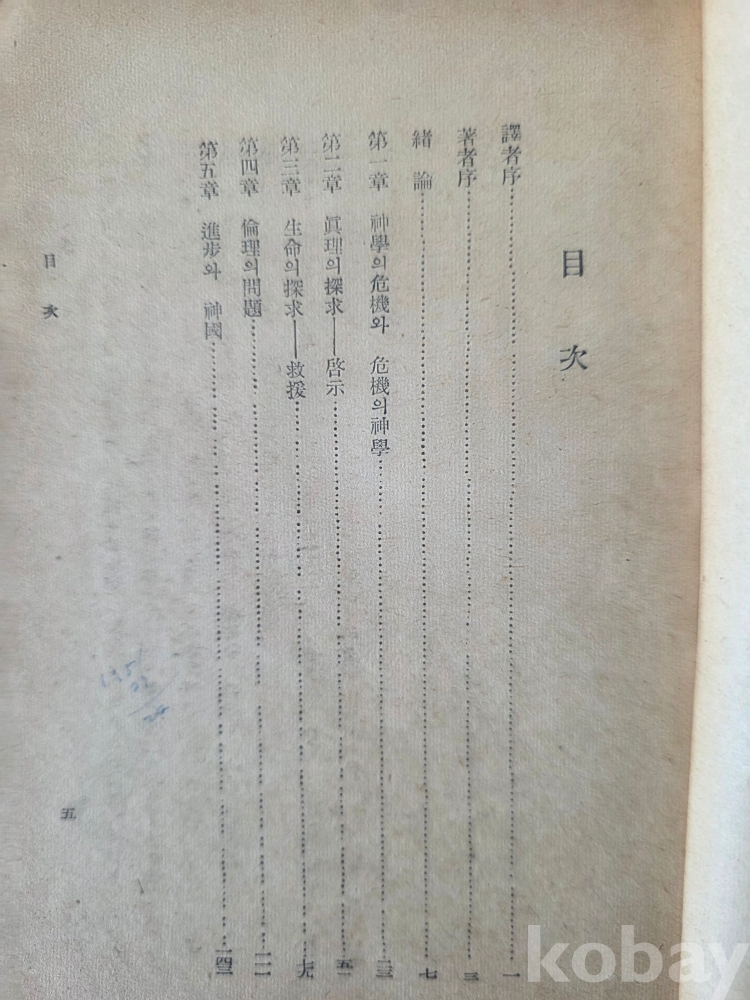 目次
譯者序 一
著者序 三
緖論 七
第一章 神學의危機와 危機의神學
第二章 眞理의探求——啓示
第三章 生命의探求——救援
第四章 倫理의問題
第五章 進步와 神國
目次
五
kobay